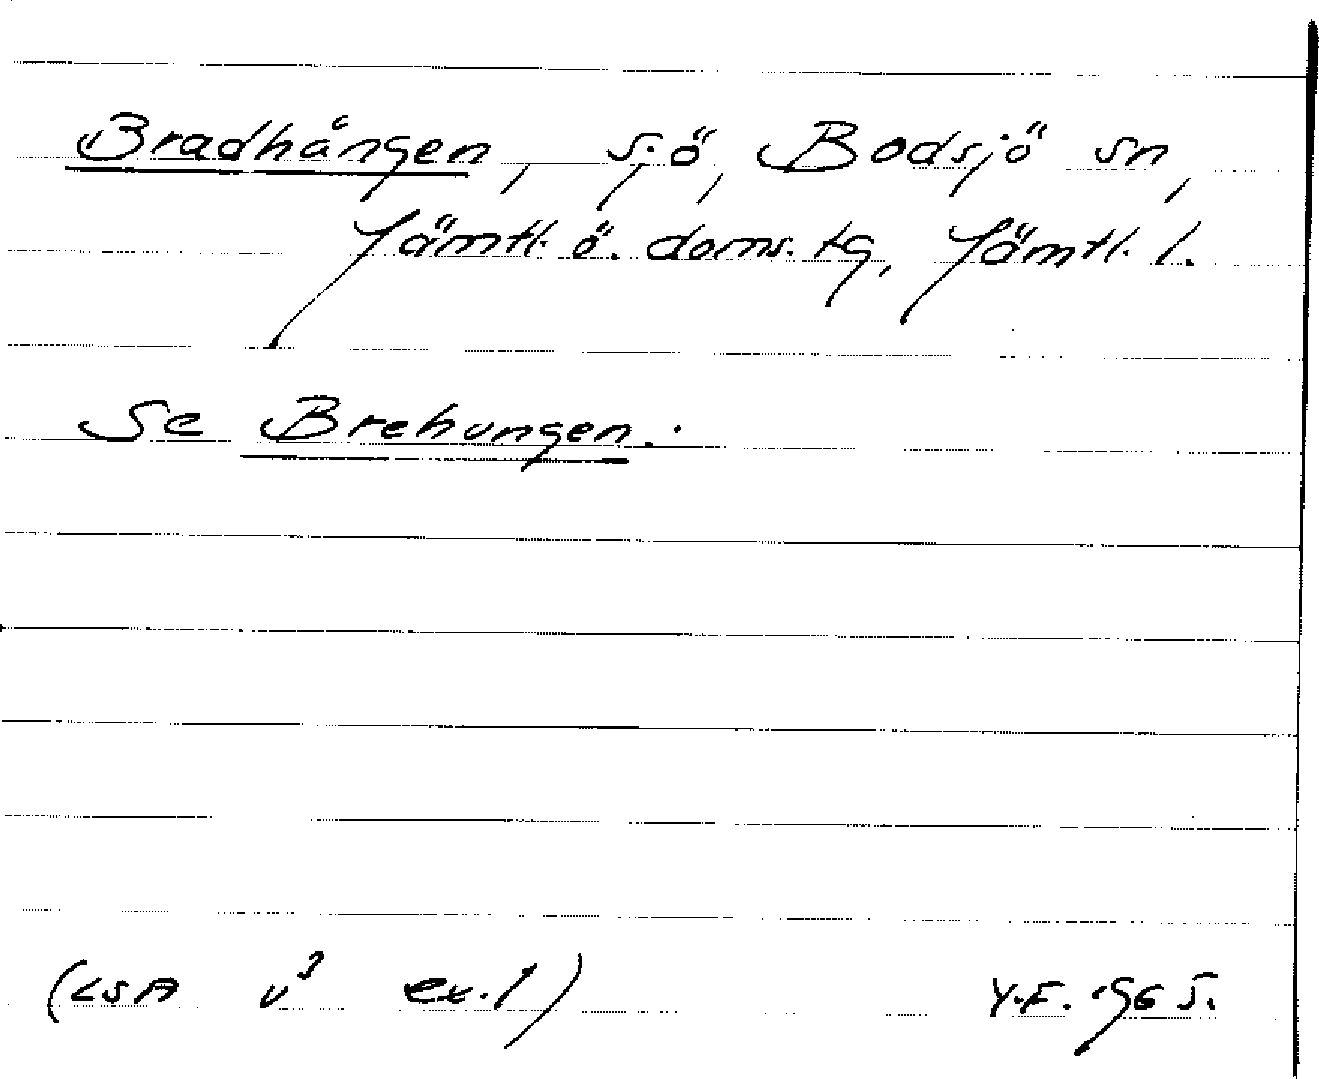 Bradhången, sjö, Bodsjö sn,
Jämtl. ö. doms. tg, Jämtl. l.
Se Brehungen.
(LSA v³ ex.1) Y.F. 1965.